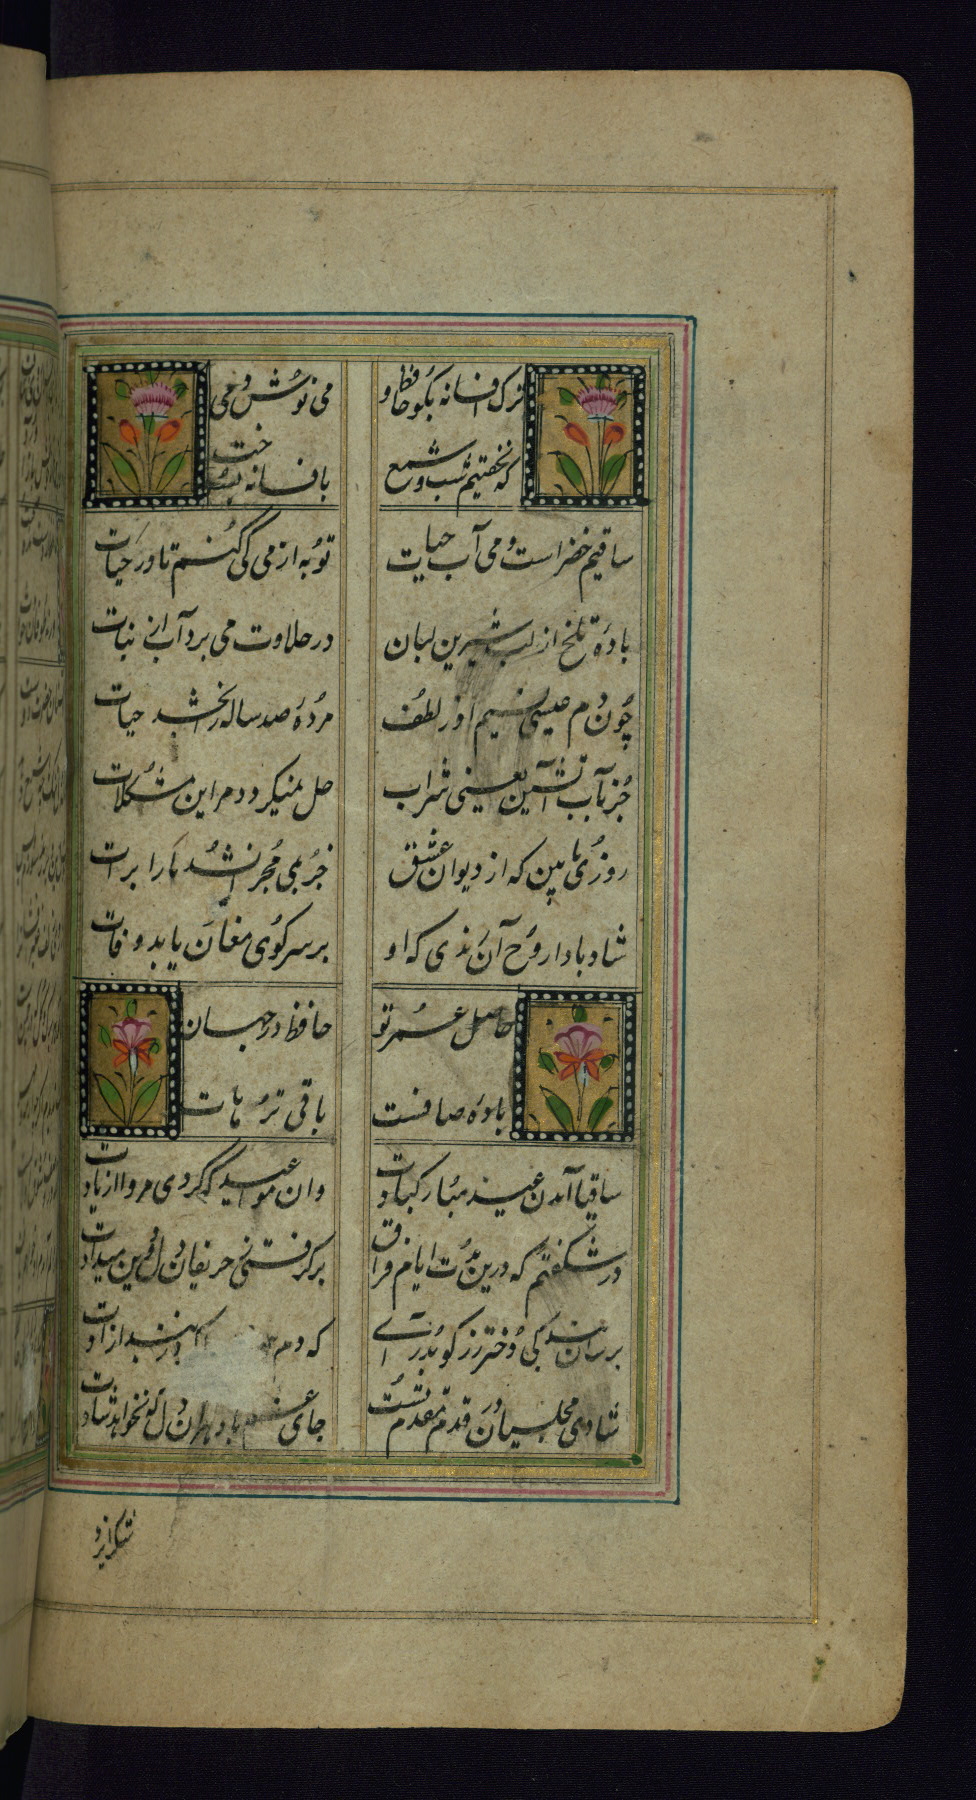 ترک افسانه بگو حافظ و می نوش دمی
که نخفتیم شب و شمع بافسانه بسوخت
ساقیم خضر است و می آب حیات توبه از می کی کنم تا در حیات
بادهٔ تلخ از لب شیرین لبان در حلاوت می برد آب از نبات
چون دم عیسی نسیم او ز لطف مردهٔ صد ساله را بخشد حیات
جز بآب آتشین یعنی شراب حل نمیگردد مرا این مشکلات
روزی ما بین که از دیوان عشق جز می مجرا نشد ما را برات
شاد بادا روح آن رندی که او بر سر کوی مغان یابد وفات
حاصل عمر تو حافظ در جهان
بادهٔ صافست باقی ترهات
ساقیا آمدن عید مبارک بادت وان مواعید که کردی مرواد از یادت
در شگفتم که درین مدت ایام فراق برگرفتی ز حریفان دل و دل میدادت
برسان بندگی دختر رز گو بدر آی که دم بند از ادت
شادی مجلسیان در قدم مقدم تست جای غم باد هر آن دل که نخواهد شادت
شکر ایزد